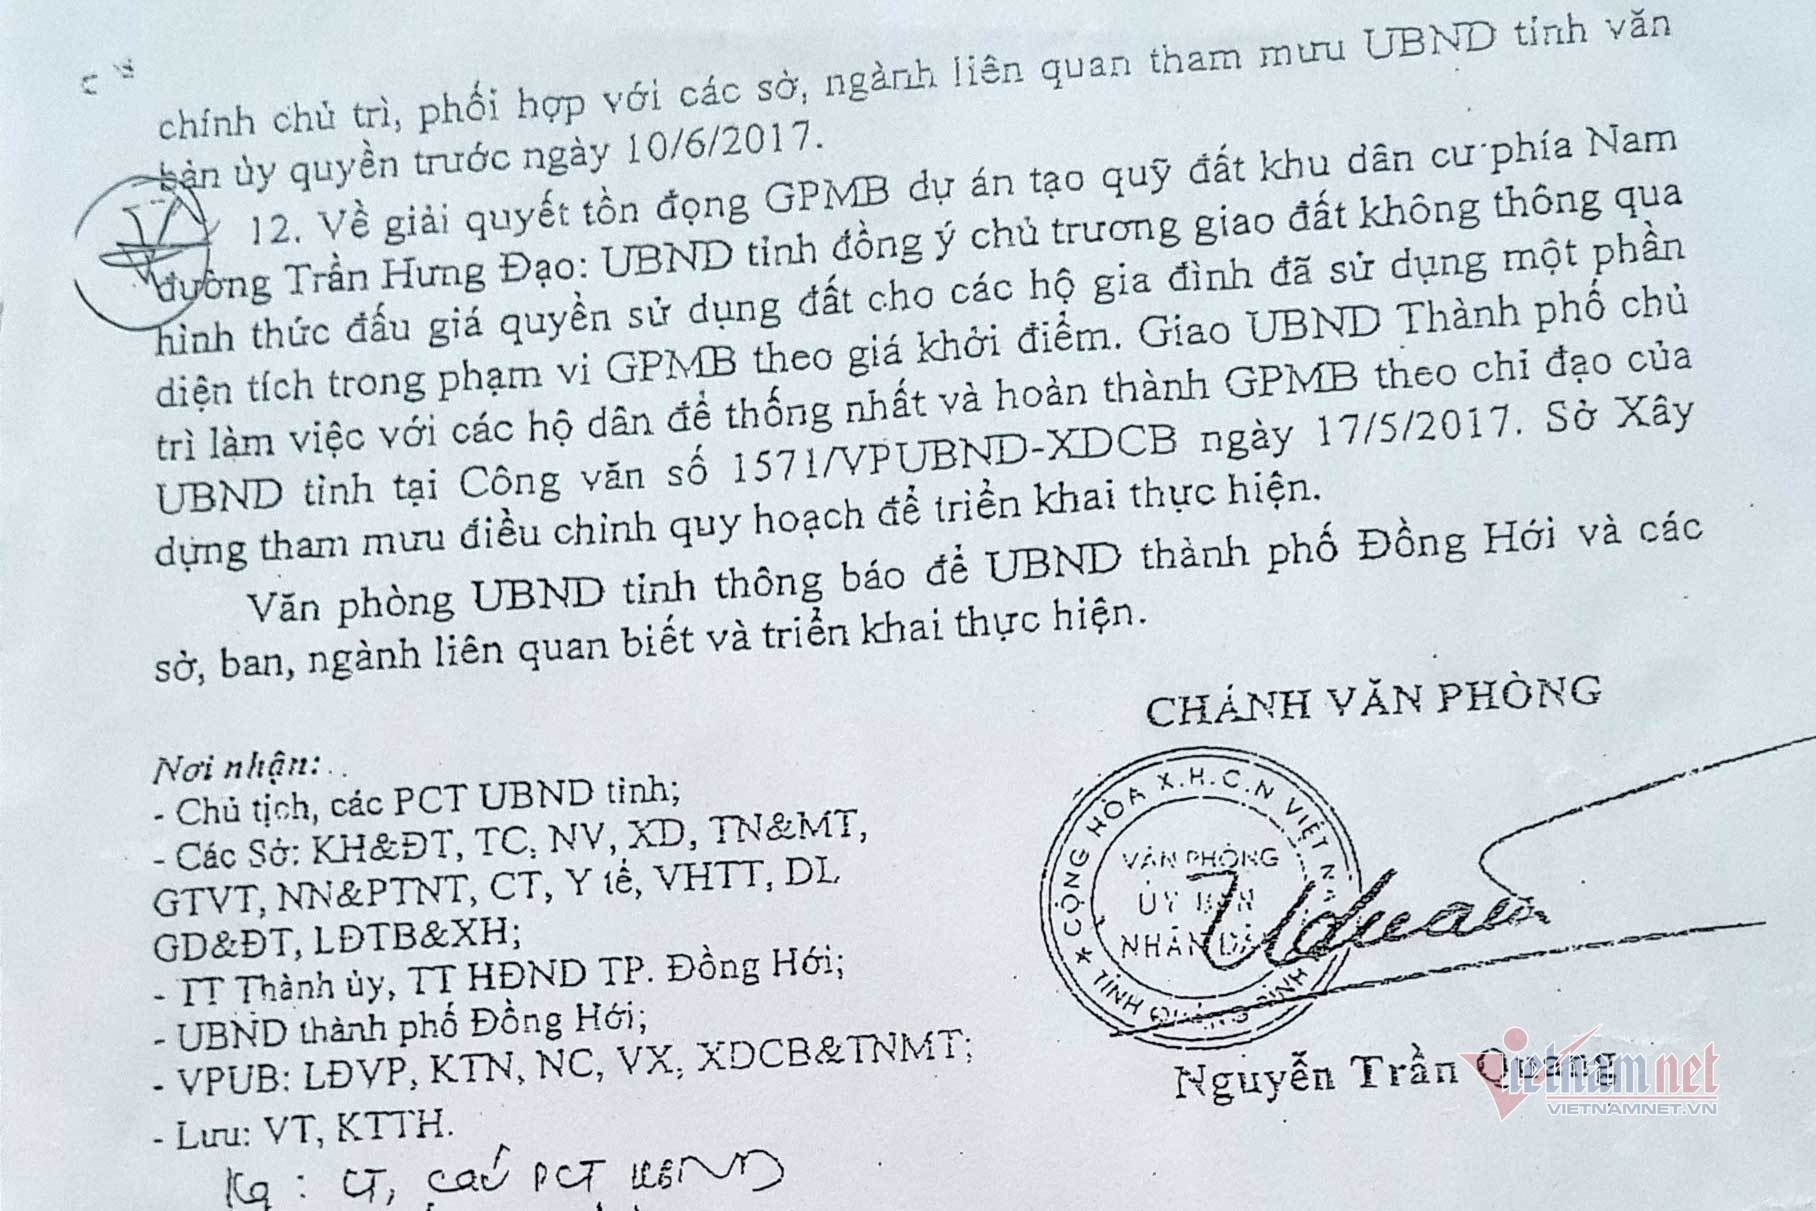 chính chủ trì, phối hợp với các sở, ngành liên quan tham mưu UBND tỉnh văn
bản ủy quyền trước ngày 10/6/2017.
12. Về giải quyết tồn đọng GPMB dự án tạo quỹ đất khu dân cư phía Nam
đường Trần Hưng Đạo: UBND tỉnh đồng ý chủ trương giao đất không thông qua
hình thức đấu giá quyền sử dụng đất cho các hộ gia đình đã sử dụng một phần
diện tích trong phạm vi GPMB theo giá khởi điểm. Giao UBND Thành phố chủ
trì làm việc với các hộ dân để thống nhất và hoàn thành GPMB theo chỉ đạo của
UBND tỉnh tại Công văn số 1571/VPUBND-XDCB ngày 17/5/2017. Sở Xây
dựng tham mưu điều chỉnh quy hoạch để triển khai thực hiện.
Văn phòng UBND tỉnh thông báo để UBND thành phố Đồng Hới và các
sở, ban, ngành liên quan biết và triển khai thực hiện.
CHÁNH VĂN PHÒNG
Nơi nhận:
- Chủ tịch, các PCT UBND tỉnh;
- Các Sở: KH&ĐT, TC, NV, XD, TN&MT,
GTVT, NN&PTNT, CT, Y tế, VHTT, DL
GD&ĐT, LĐTB&XH;
- TT Thành ủy, TT HĐND TP. Đồng Hới;
- UBND thành phố Đồng Hới;
- VPUB: LĐVP, KTN, NC, VX, XDCB&TNMT;
- Lưu: VT, KTTH.
CỘNG HÒA X.H.C.N VIỆT NAM
VĂN PHÒNG
ỦY BAN
NHÂN DÂN
TỈNH QUẢNG BÌNH
Nguyễn Trần Quang
Vietnamnet
VIETNAMNET.VN
Kg: CT, các PCT UBND